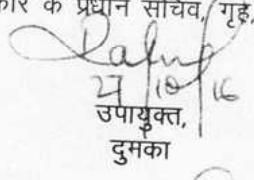 कार के प्रधान सचिव, गृह,
27/10/16
उपायुक्त,
दुमका